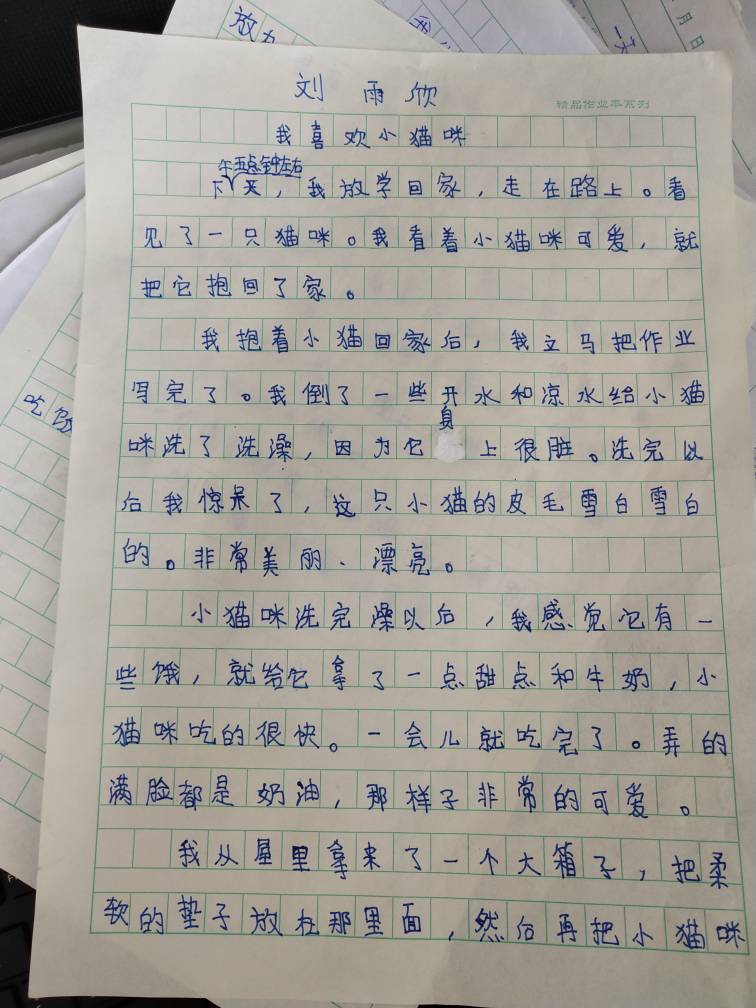 刘雨欣
精品作业本系列
我喜欢小猫咪
午五点钟左右
下天，我放学回家，走在路上。看
见了一只猫咪。我看着小猫咪可爱，就
把它抱回了家。
我抱着小猫回家后，我立马把作业
写完了。我倒了一些开水和凉水给小猫
身
咪洗了洗澡，因为它上很脏。洗完以
后我惊呆了，这只小猫的皮毛雪白雪白
的。非常美丽、漂亮。
小猫咪洗完澡以后，我感觉它有一
些饿，就给它拿了一点甜点和牛奶，小
猫咪吃的很快。一会儿就吃完了。弄的
满脸都是奶油，那样子非常的可爱。
我从屋里拿来了一个大箱子，把柔
软的垫子放在那里面，然后再把小猫咪
放
吃
月日